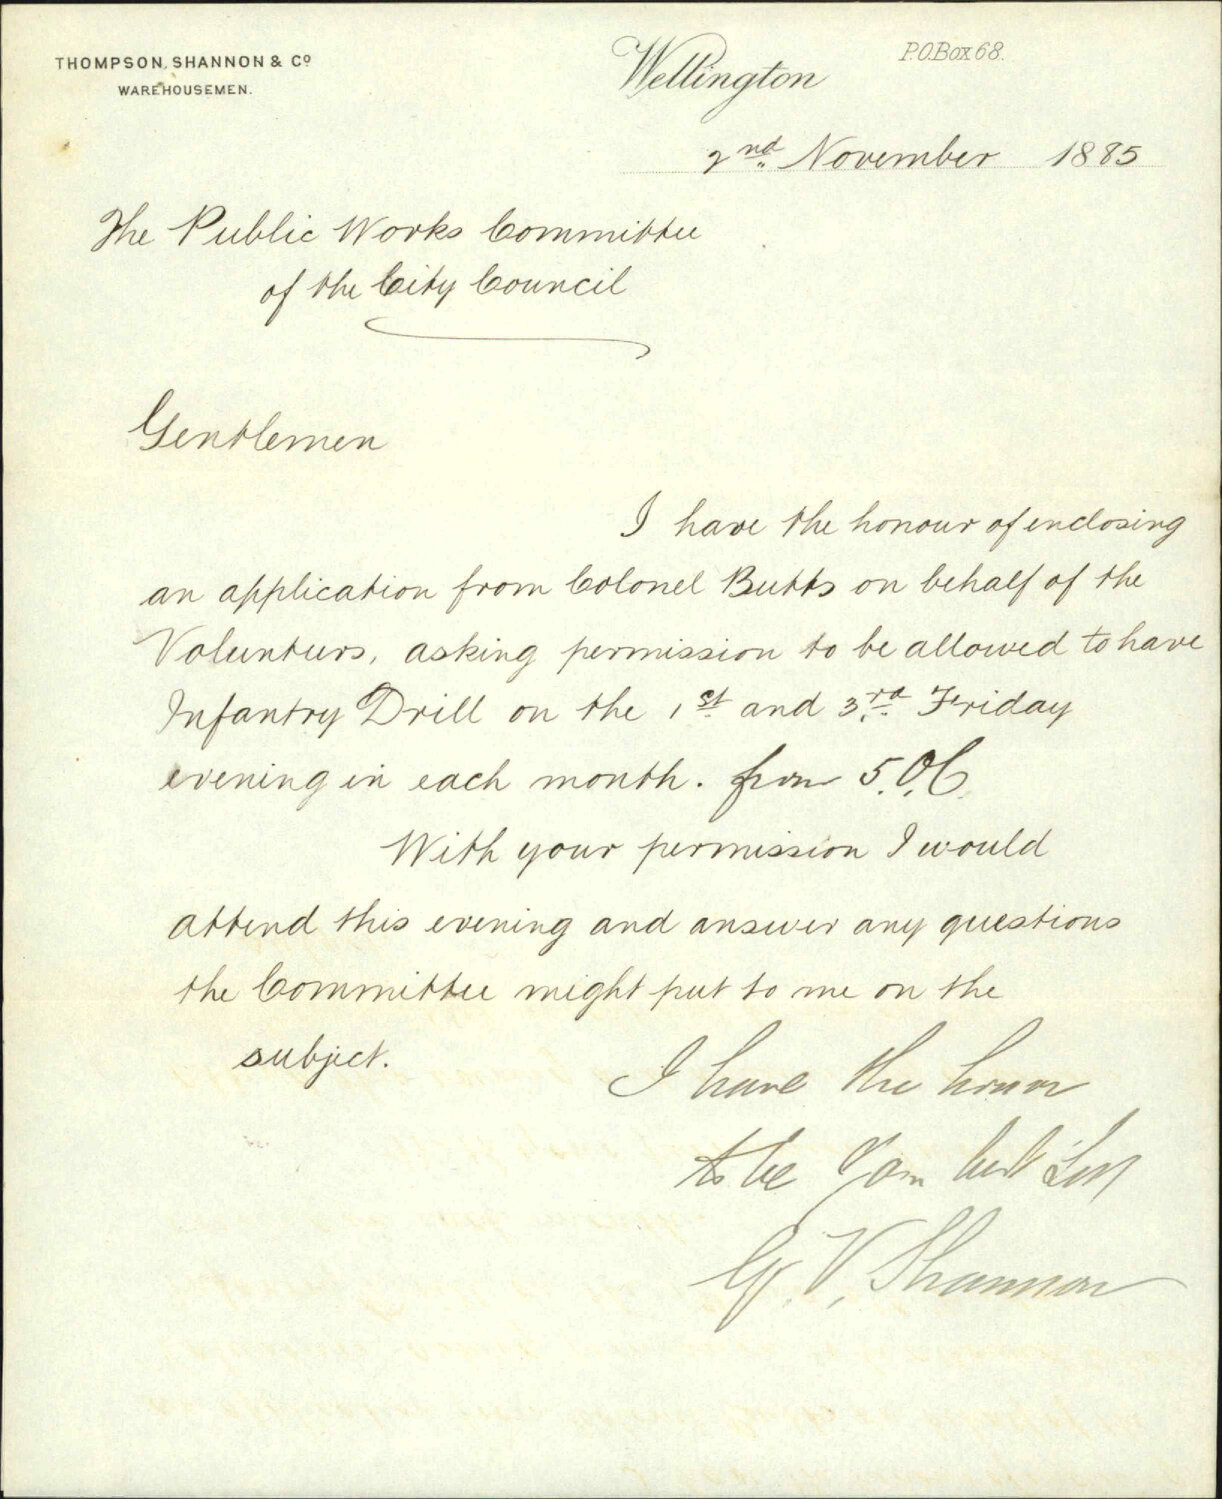 THOMPSON, SHANNON & Co
WAREHOUSEMEN.
Wellington
P.O. Box 68.
2nd. November 1885
The Public Works Committee
of the City Council
Gentlemen
I have the honour of enclosing
an application from Colonel Butts on behalf of the
Volunteers, asking permission to be allowed to have
Infantry Drill on the 1st and 3rd Friday
evening in each month. from 5.O.C.
With your permission I would
attend this evening and answer any questions
the Committee might put to me on the
subject.
I have the honor
to be Your
G. V. Shannon